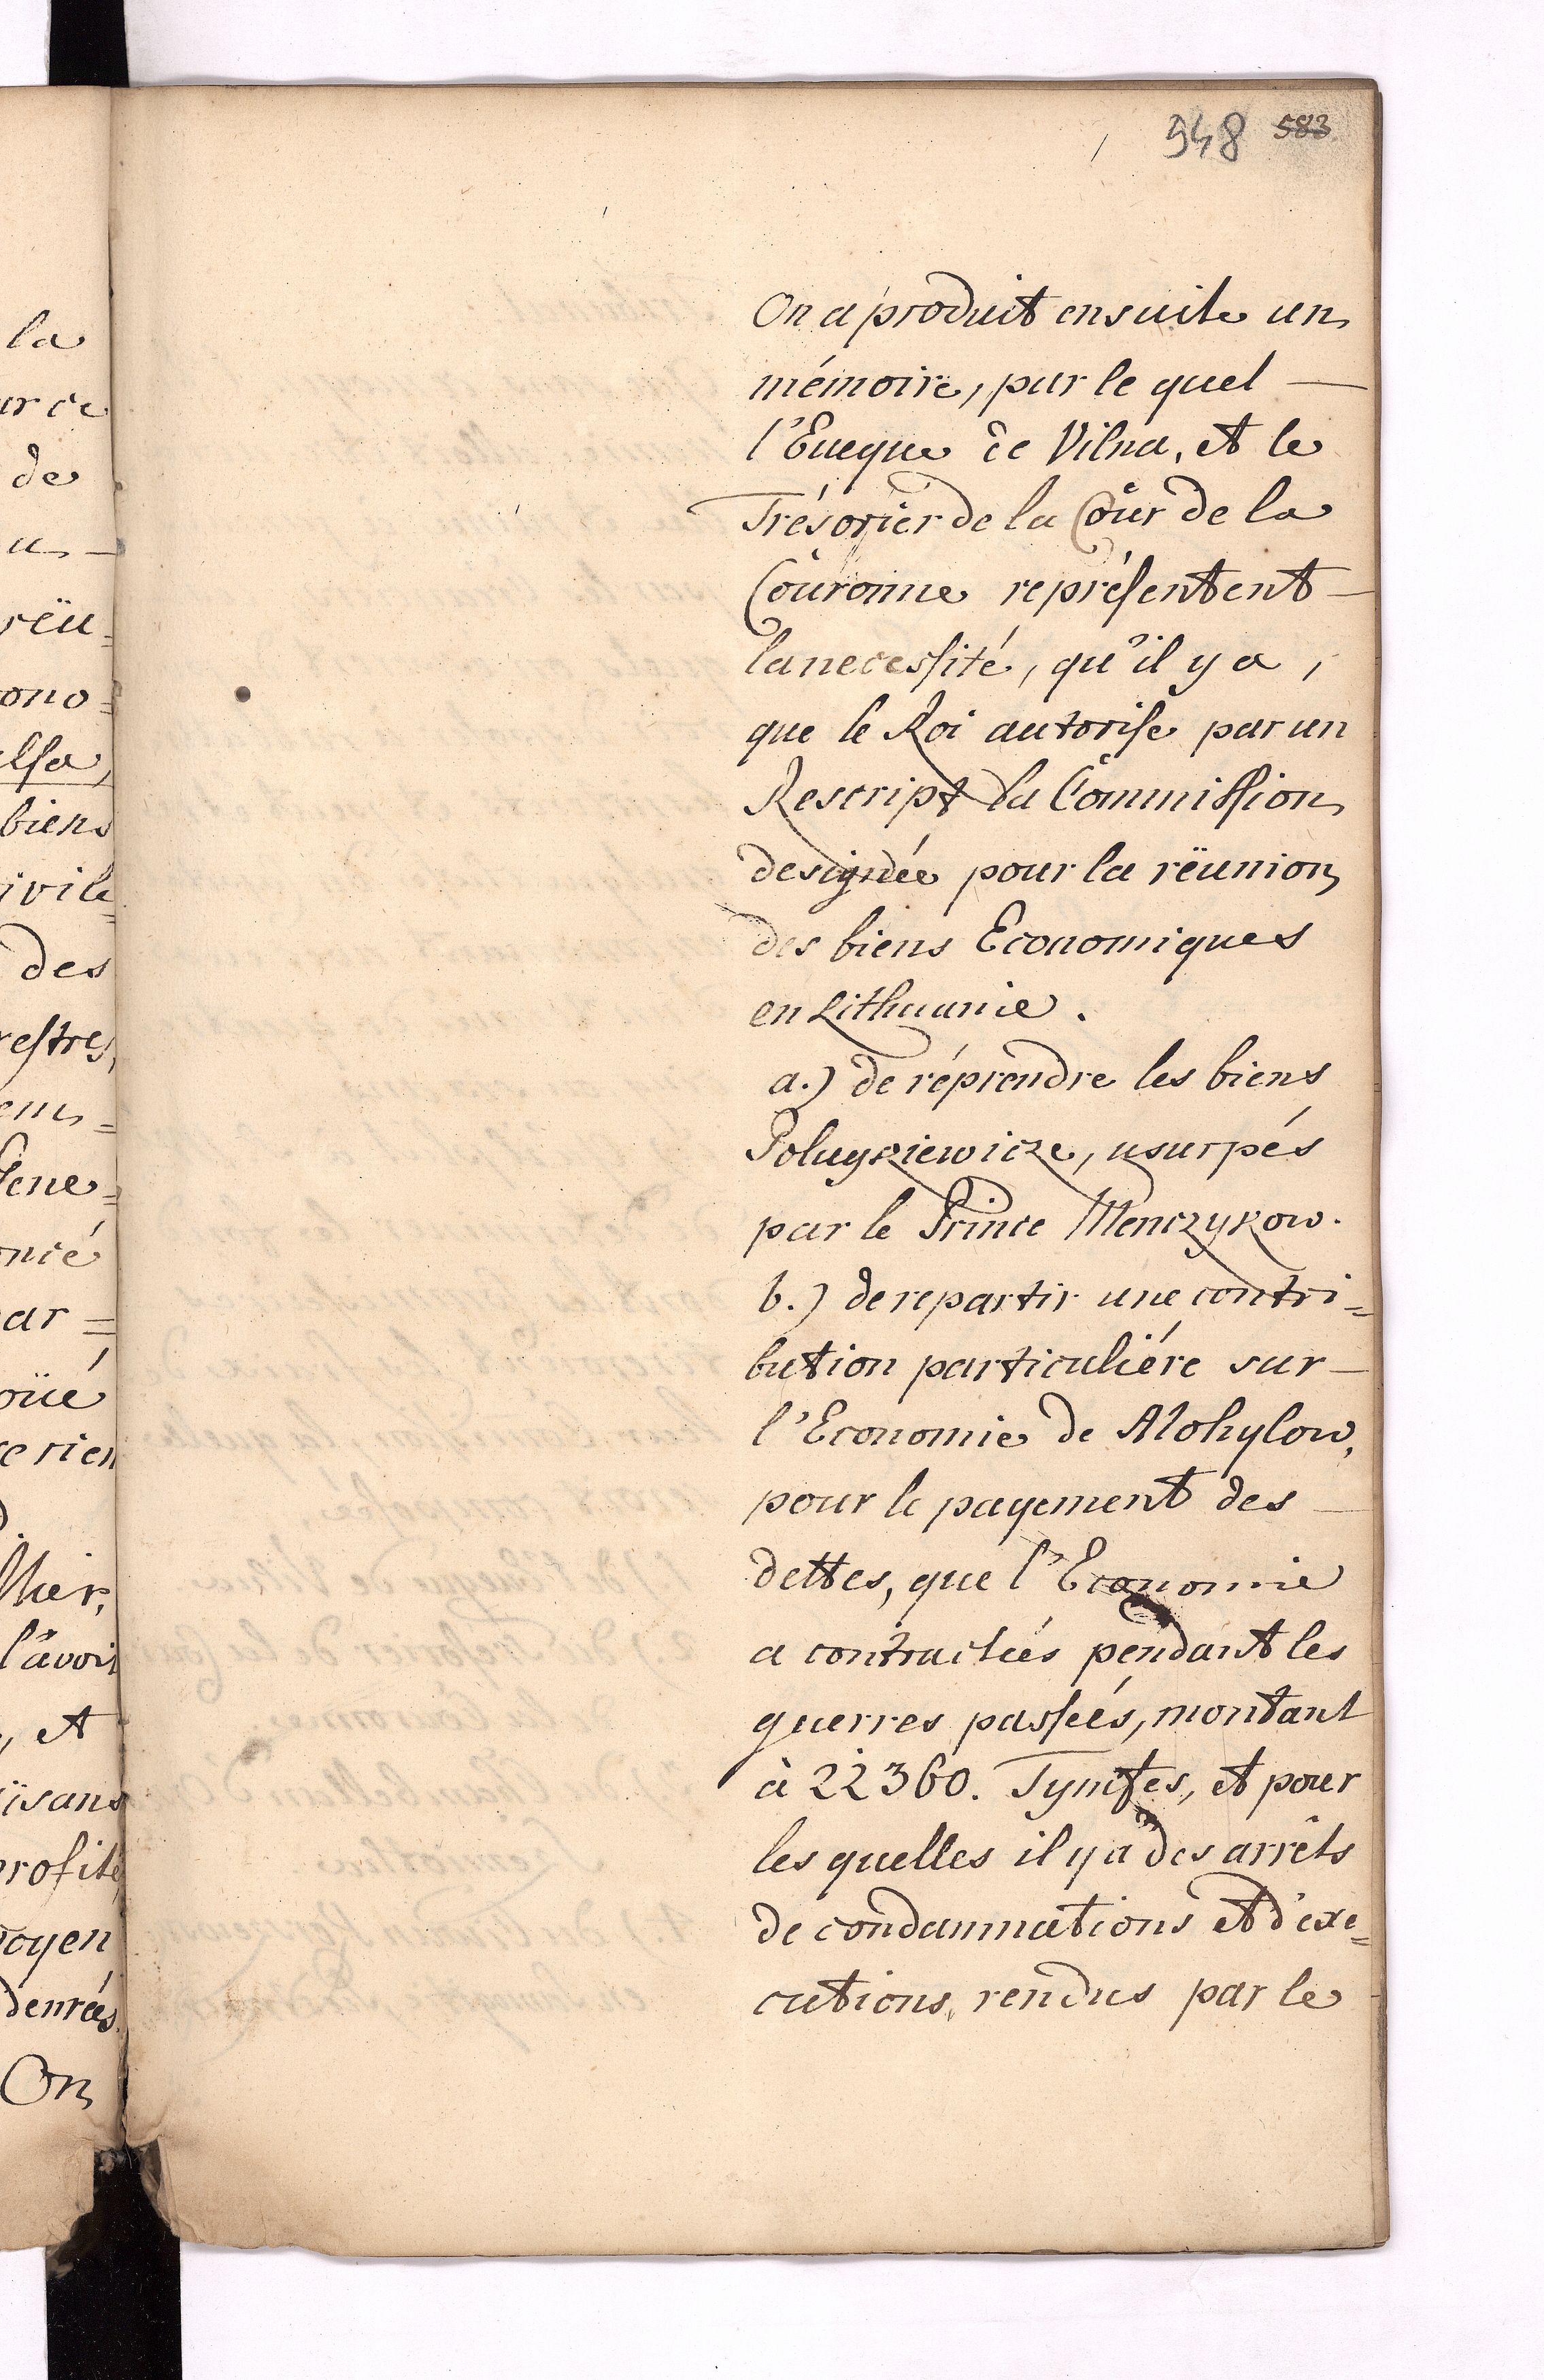 948 583
On a produit ensuite un
mémoire, par le quel —
l'Eueque de Vilna, et le
Trésorier de la Cour de la
Couronne repréſentent —
la necesſité, qu'il y a,
que le Roi autoriſe par un
Rescript la Commiſſion
designée pour la rëunion
des biens Economiques
en Lithuanie.
a.) de réprendre les biens
usurpés
par le Prince Menczykow.
b.) de repartir une contri=
bution particuliére sur —
l'Economie de Mohylow,
pour le payement des —
dettes, que l'Economie
a contractées pendant les
guerres pasſées, montant
à 22360. Tymfes, et pour
les quelles il y a des arrêts
de condamnations et d'exe=
cutions, rendus par le
la
de
rëu=
ono=
biens
ivile=
des
reſtres,
Gene=
ar =
oüé
l'avoit
, et
profité
moyen
denrées.
On